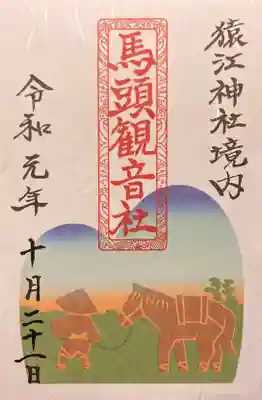 猿江神社境内
馬頭観音社
令和元年
十月二十一日